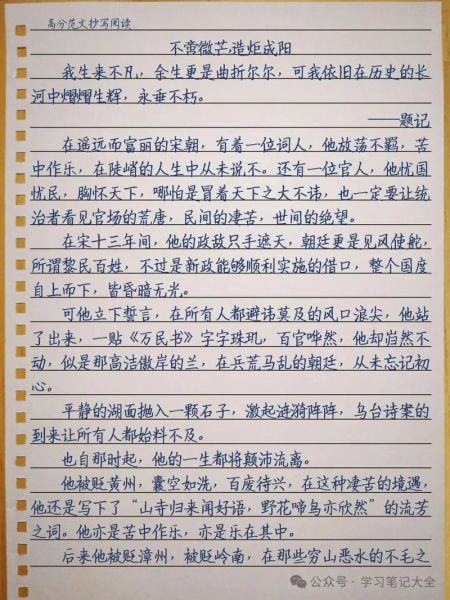 高分范文抄写阅读
不啻微芒,造炬成阳
我生来不凡，余生更是曲折尔尔，可我依旧在历史的长
河中熠熠生辉，永垂不朽。
——题记
在遥远而富丽的宋朝，有着一位词人，他放荡不羁，苦
中作乐，在陡峭的人生中从未说不。还有一位官人，他忧国
忧民，胸怀天下，哪怕是冒着天下之大不讳，也一定要让统
治者看见官场的荒唐，民间的凄苦，世间的绝望。
在宋十三年间，他的政敌只手遮天，朝廷更是见风使舵，
所谓黎民百姓，不过是新政能够顺利实施的借口，整个国度
自上而下，皆昏暗无光。
可他立下誓言，在所有人都避讳莫及的风口浪尖，他站
了出来，一贴《万民书》字字珠玑，百官哗然，他却岿然不
动，似是那高洁傲岸的兰，在兵荒马乱的朝廷，从未忘记初
心。
平静的湖面抛入一颗石子，激起涟漪阵阵，乌台诗案的
到来让所有人都始料不及。
也自那时起，他的一生都将颠沛流离。
他被贬黄州，囊空如洗，百废待兴，在这种凄苦的境遇，
他还是写下了“山寺归来闻好语，野花啼鸟亦欣然”的流芳
之词。他亦是苦中作乐，亦是乐在其中。
后来他被贬漳州，被贬岭南，在那些穷山恶水的不毛之
公众号·学习笔记大全